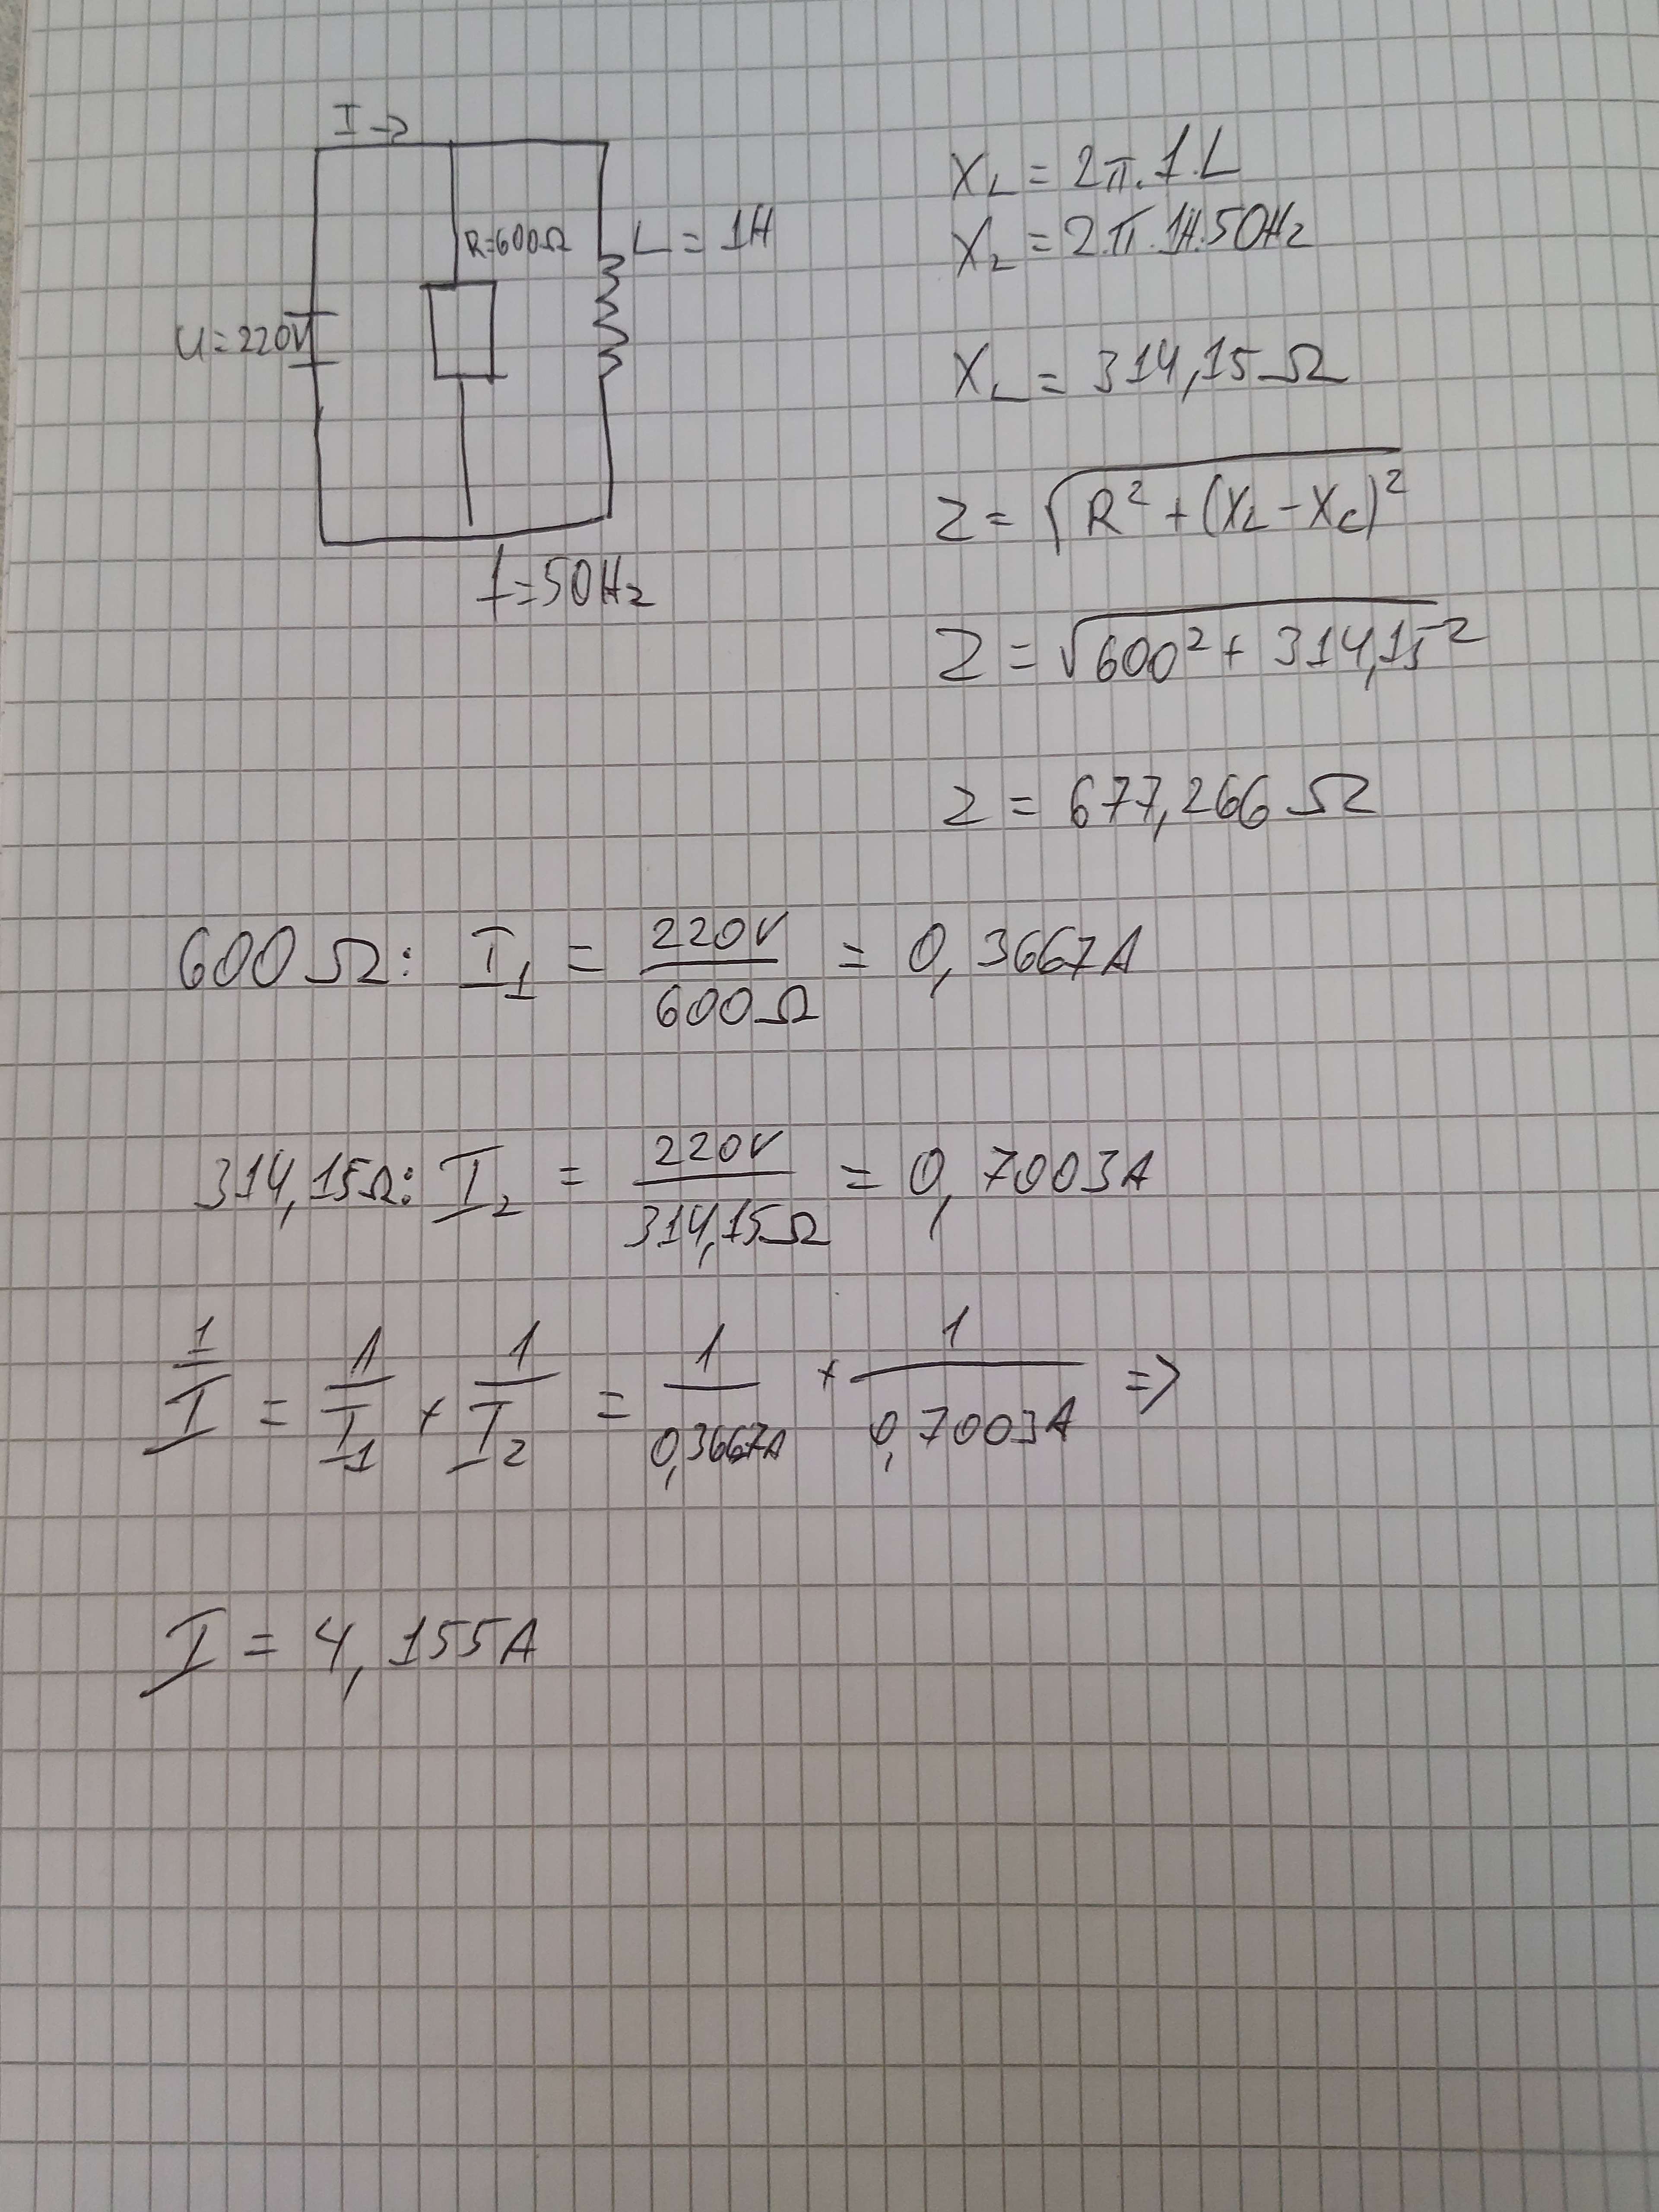 I →
R=600Ω
L = 1H
U=220V
f=50Hz
X_L = 2π.f.L
X_L = 2.π.1H.50Hz
X_L = 314,15Ω
Z = √R² + (X_L - X_C)²
Z = √600² + 314,15²
Z = 677,266Ω
600Ω: I₁ = 220V/600Ω = 0,3667A
314,15Ω: I₂ = 220V/314,15Ω = 0,7003A
1/I = 1/I₁ + 1/I₂ = 1/0,3667A + 1/0,7003A =>
I = 4,155A